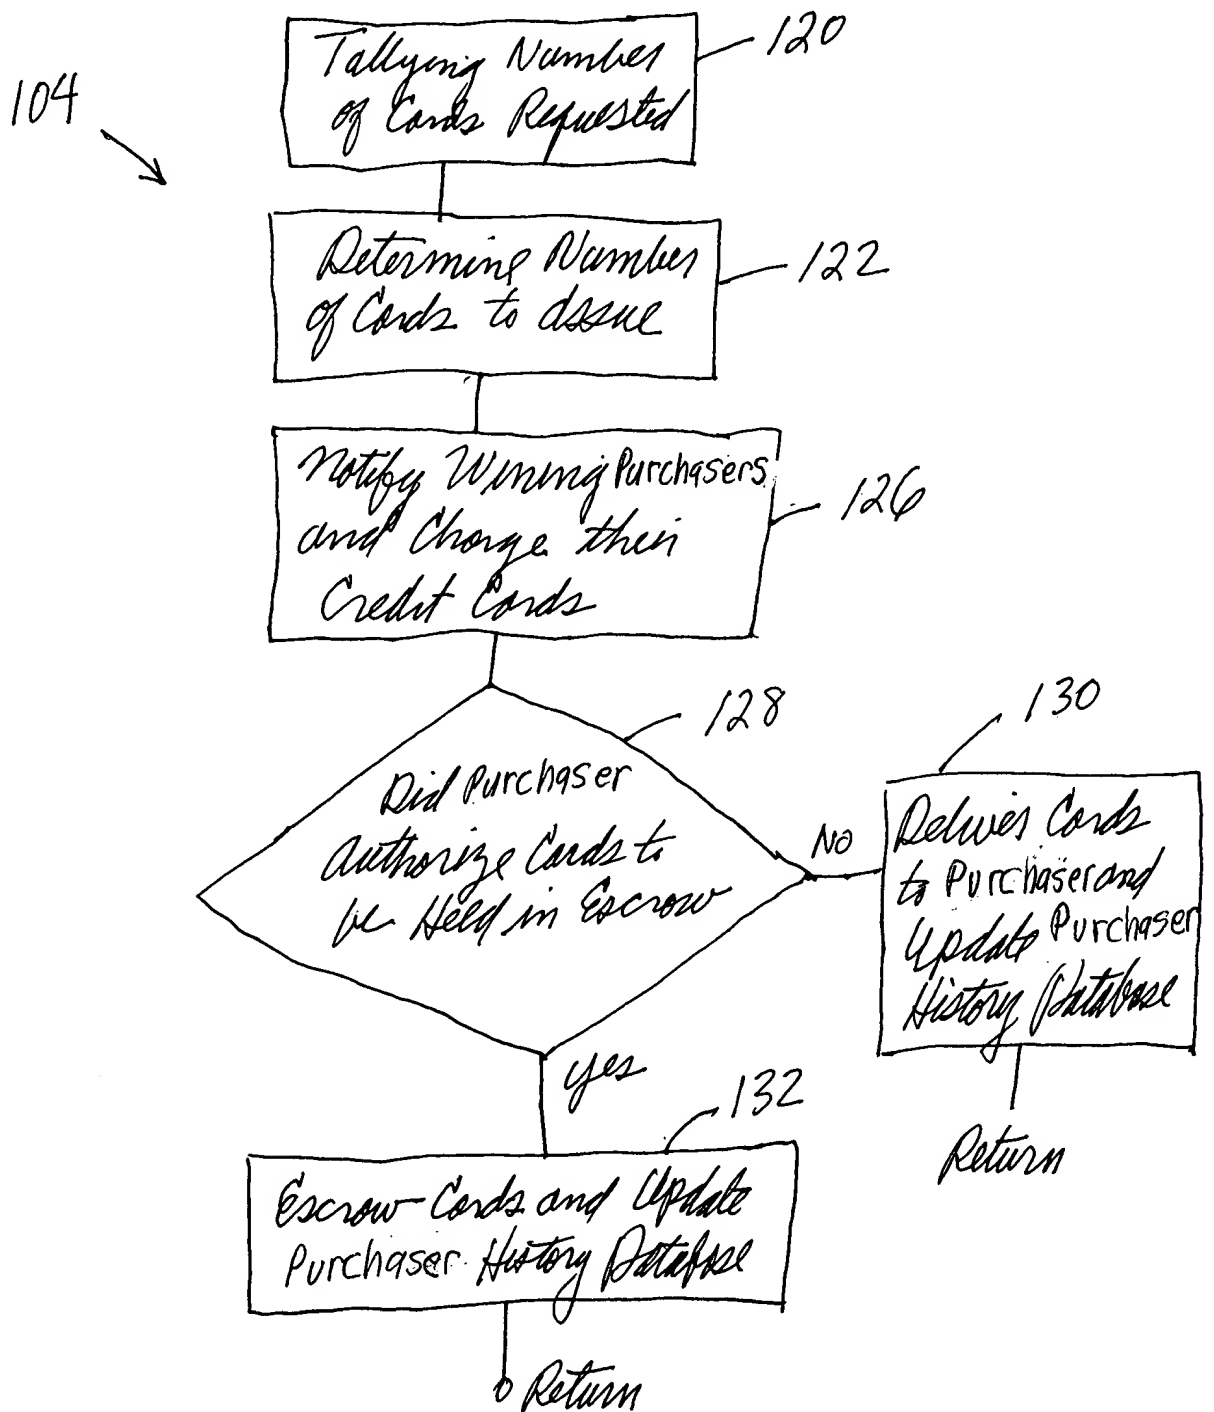 120
Tallying Number
of Cards Requested
104
Determine Number
of Cards to Issue
122
Notify Wining Purchasers
and Charge their
Credit Cards
126
128
Did Purchaser
Authorize Cards to
be Held in Escrow
No
130
Deliver Cards
to Purchaser and
Update Purchaser
History Database
Return
yes
132
Escrow Cards and Update
Purchaser History Database
Return